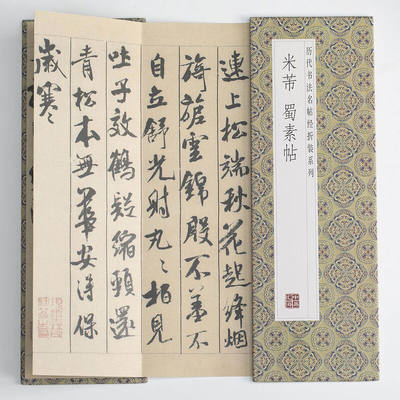 历代书法名帖经折装系列
米芾 蜀素帖
連上松端秋花起絳烟
旖旎雲錦殷不羞不
自立舒光射丸〻柏見
吐子效鶴疑縮頸還
青松本無華安得保
歲寒